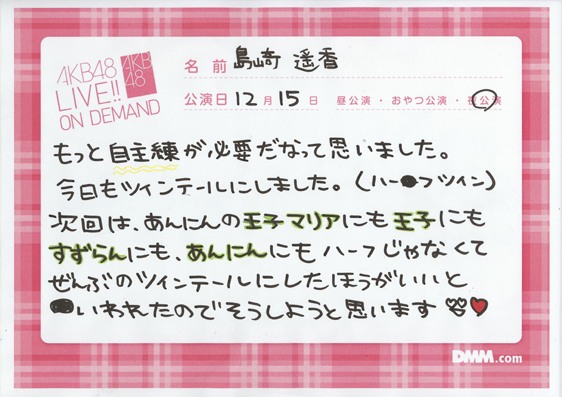 AKB48
LIVE!!
ON DEMAND
AKB
48
名前 島崎 遥香
公演日 12月15日 昼公演・おやつ公演・夜公演
もっと自主練が必要だなって思いました。
今日もツインテールにしました。(ハーフツイン)
次回は、あんにんの王子マリアにも王子にも
すずらんにも、あんにんにもハーフじゃなくて
ぜんぶのツインテールにしたほうがいいと
いわれたのでそうしようと思います
DMM.com